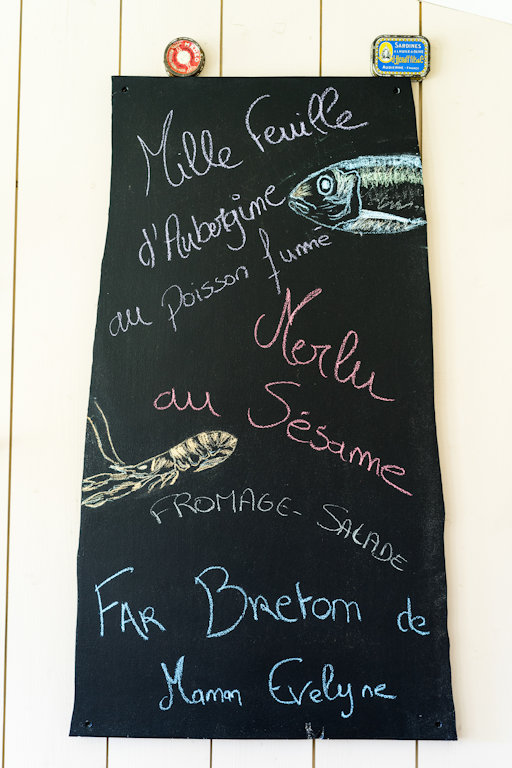 SARDINES
Mille Feuille
d'Aubergine
au poisson fumé
Merlu
au Sésame
FROMAGE - SALADE
FAR Breton de
Maman Evelyne